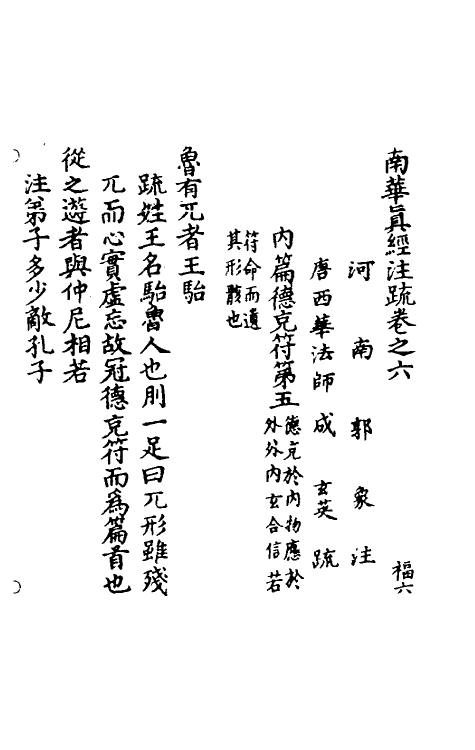 南華真經注疏卷之六
福六
河南郭象注
唐西華法師成玄英疏
內篇德充符第五
德充於內物應於
外外內玄合信若
符命而遺
其形骸也
魯有兀者王駘
疏姓王名駘魯人也刖一足曰兀形雖殘
兀而心實虛忘故冠德充符而為篇首也
從之遊者與仲尼相若
注弟子多少敵孔子